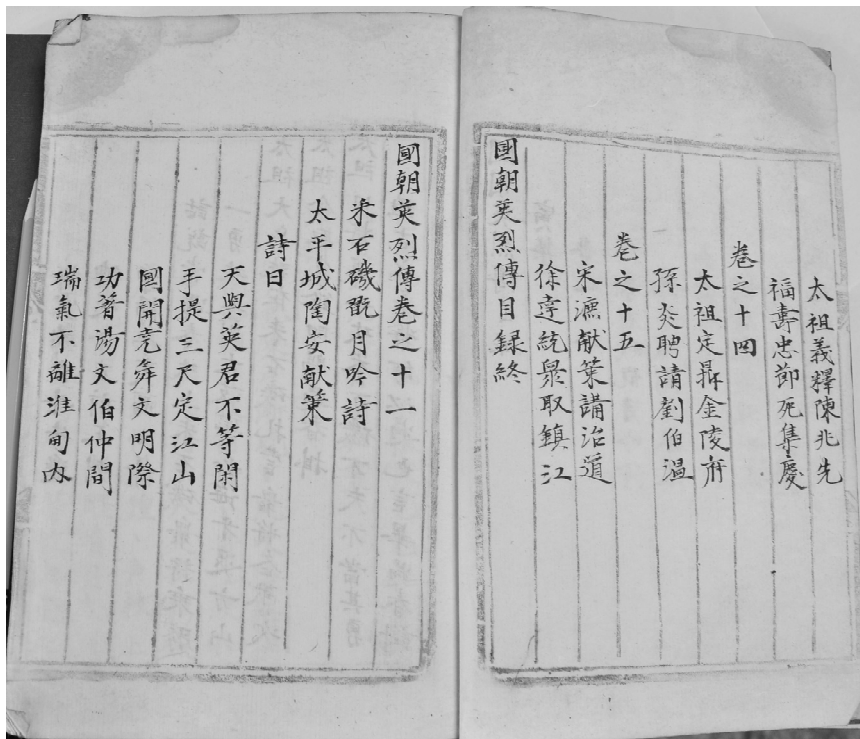 太祖義釋陳兆先
福壽忠節死集慶
卷之十四
太祖定鼎金陵府
孫炎聘請劉伯温
卷之十五
宋濂献策講治道
徐達統衆取鎮江
國朝英烈傳目録終
國朝英烈傳卷之十一
采石磯翫月吟詩
太平城陶安献策
詩曰
天與英君不等閑
手提三尺定江山
國開堯舜文明際
功普湯文伯仲間
瑞氣不離淮甸内